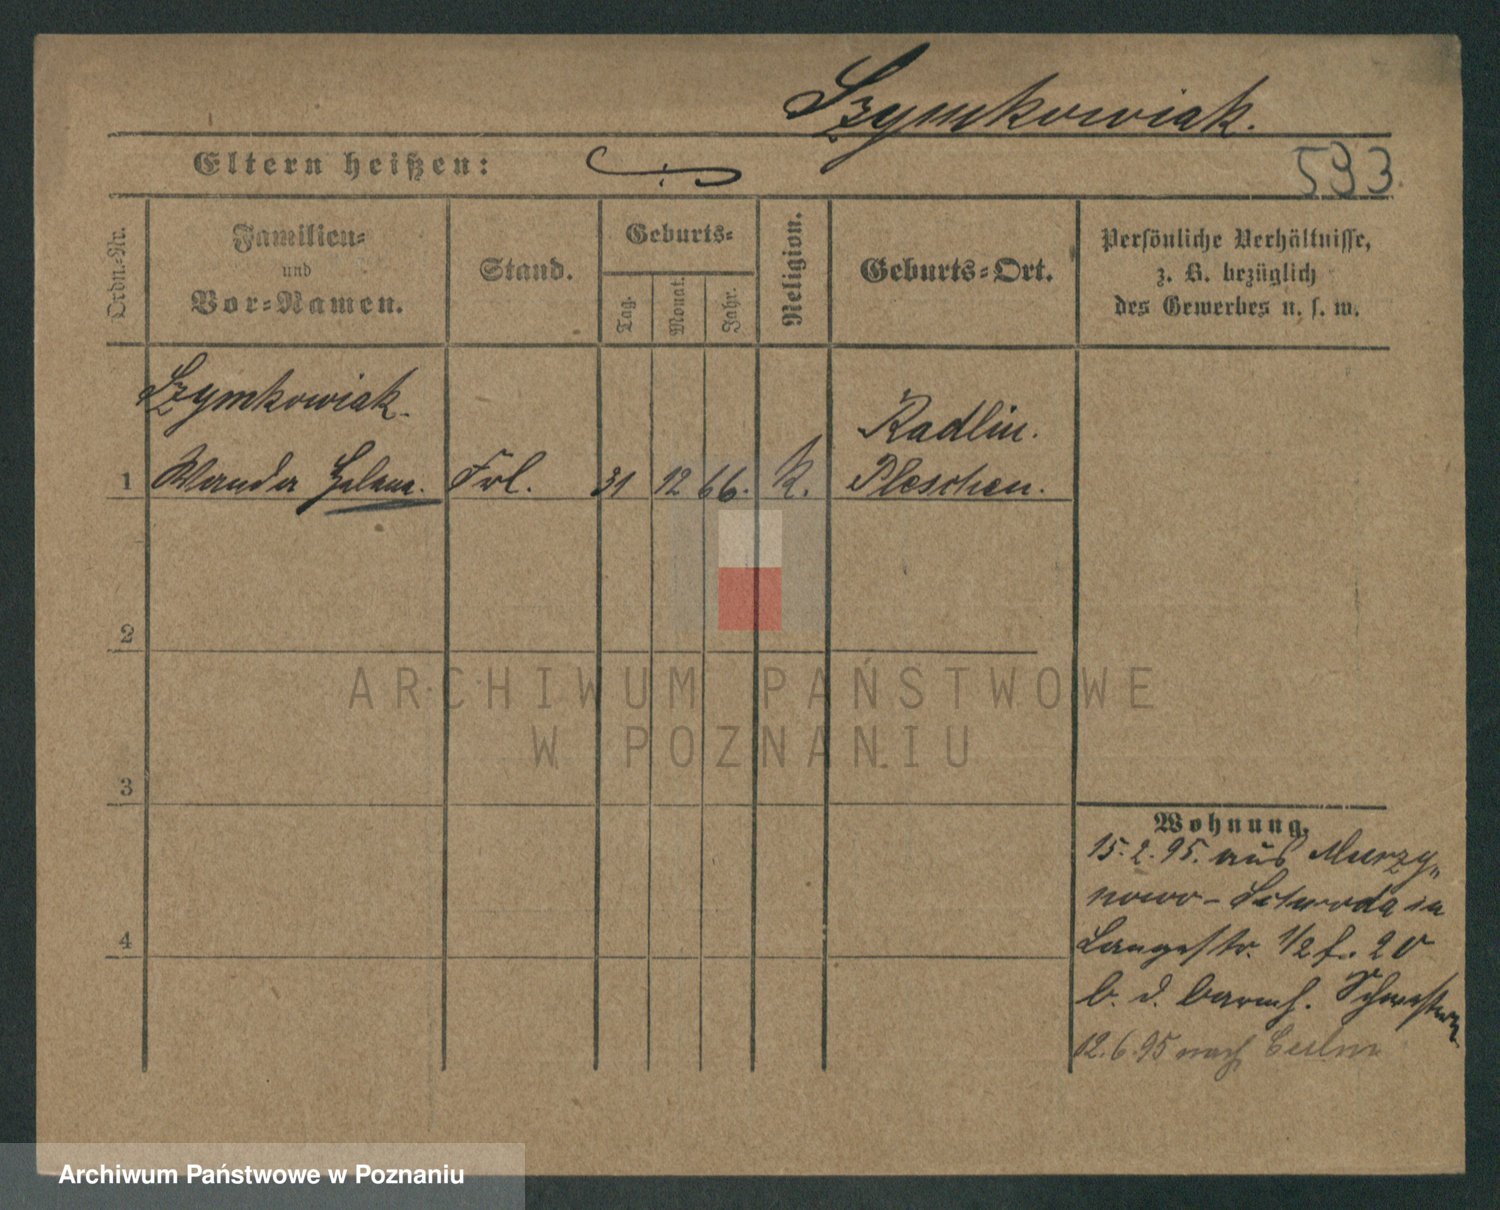 Szymkowiak.
Eltern heißen:
593
Ordn.-Nr.
Familien-
und
Vor-Namen.
Stand.
Geburts-
Tag.
Monat.
Jahr.
Religion.
Geburts-Ort.
Persönliche Verhältnisse,
z. B. bezüglich
des Gewerbes u. s. w.
Szymkowiak.
1 Wanda Helena. Frl. 31 12 66. K.
Radlin.
Pleschen.
2
3
4
Wohnung.
15.2.95. aus Murzy„
nowo - Schroda in
Langestr. 1/2 f.
b. d. barmh. Schwestern
12.6.95 nach
ARCHIWUM PAŃSTWOWE
W POZNANIU
Archiwum Państwowe w Poznaniu